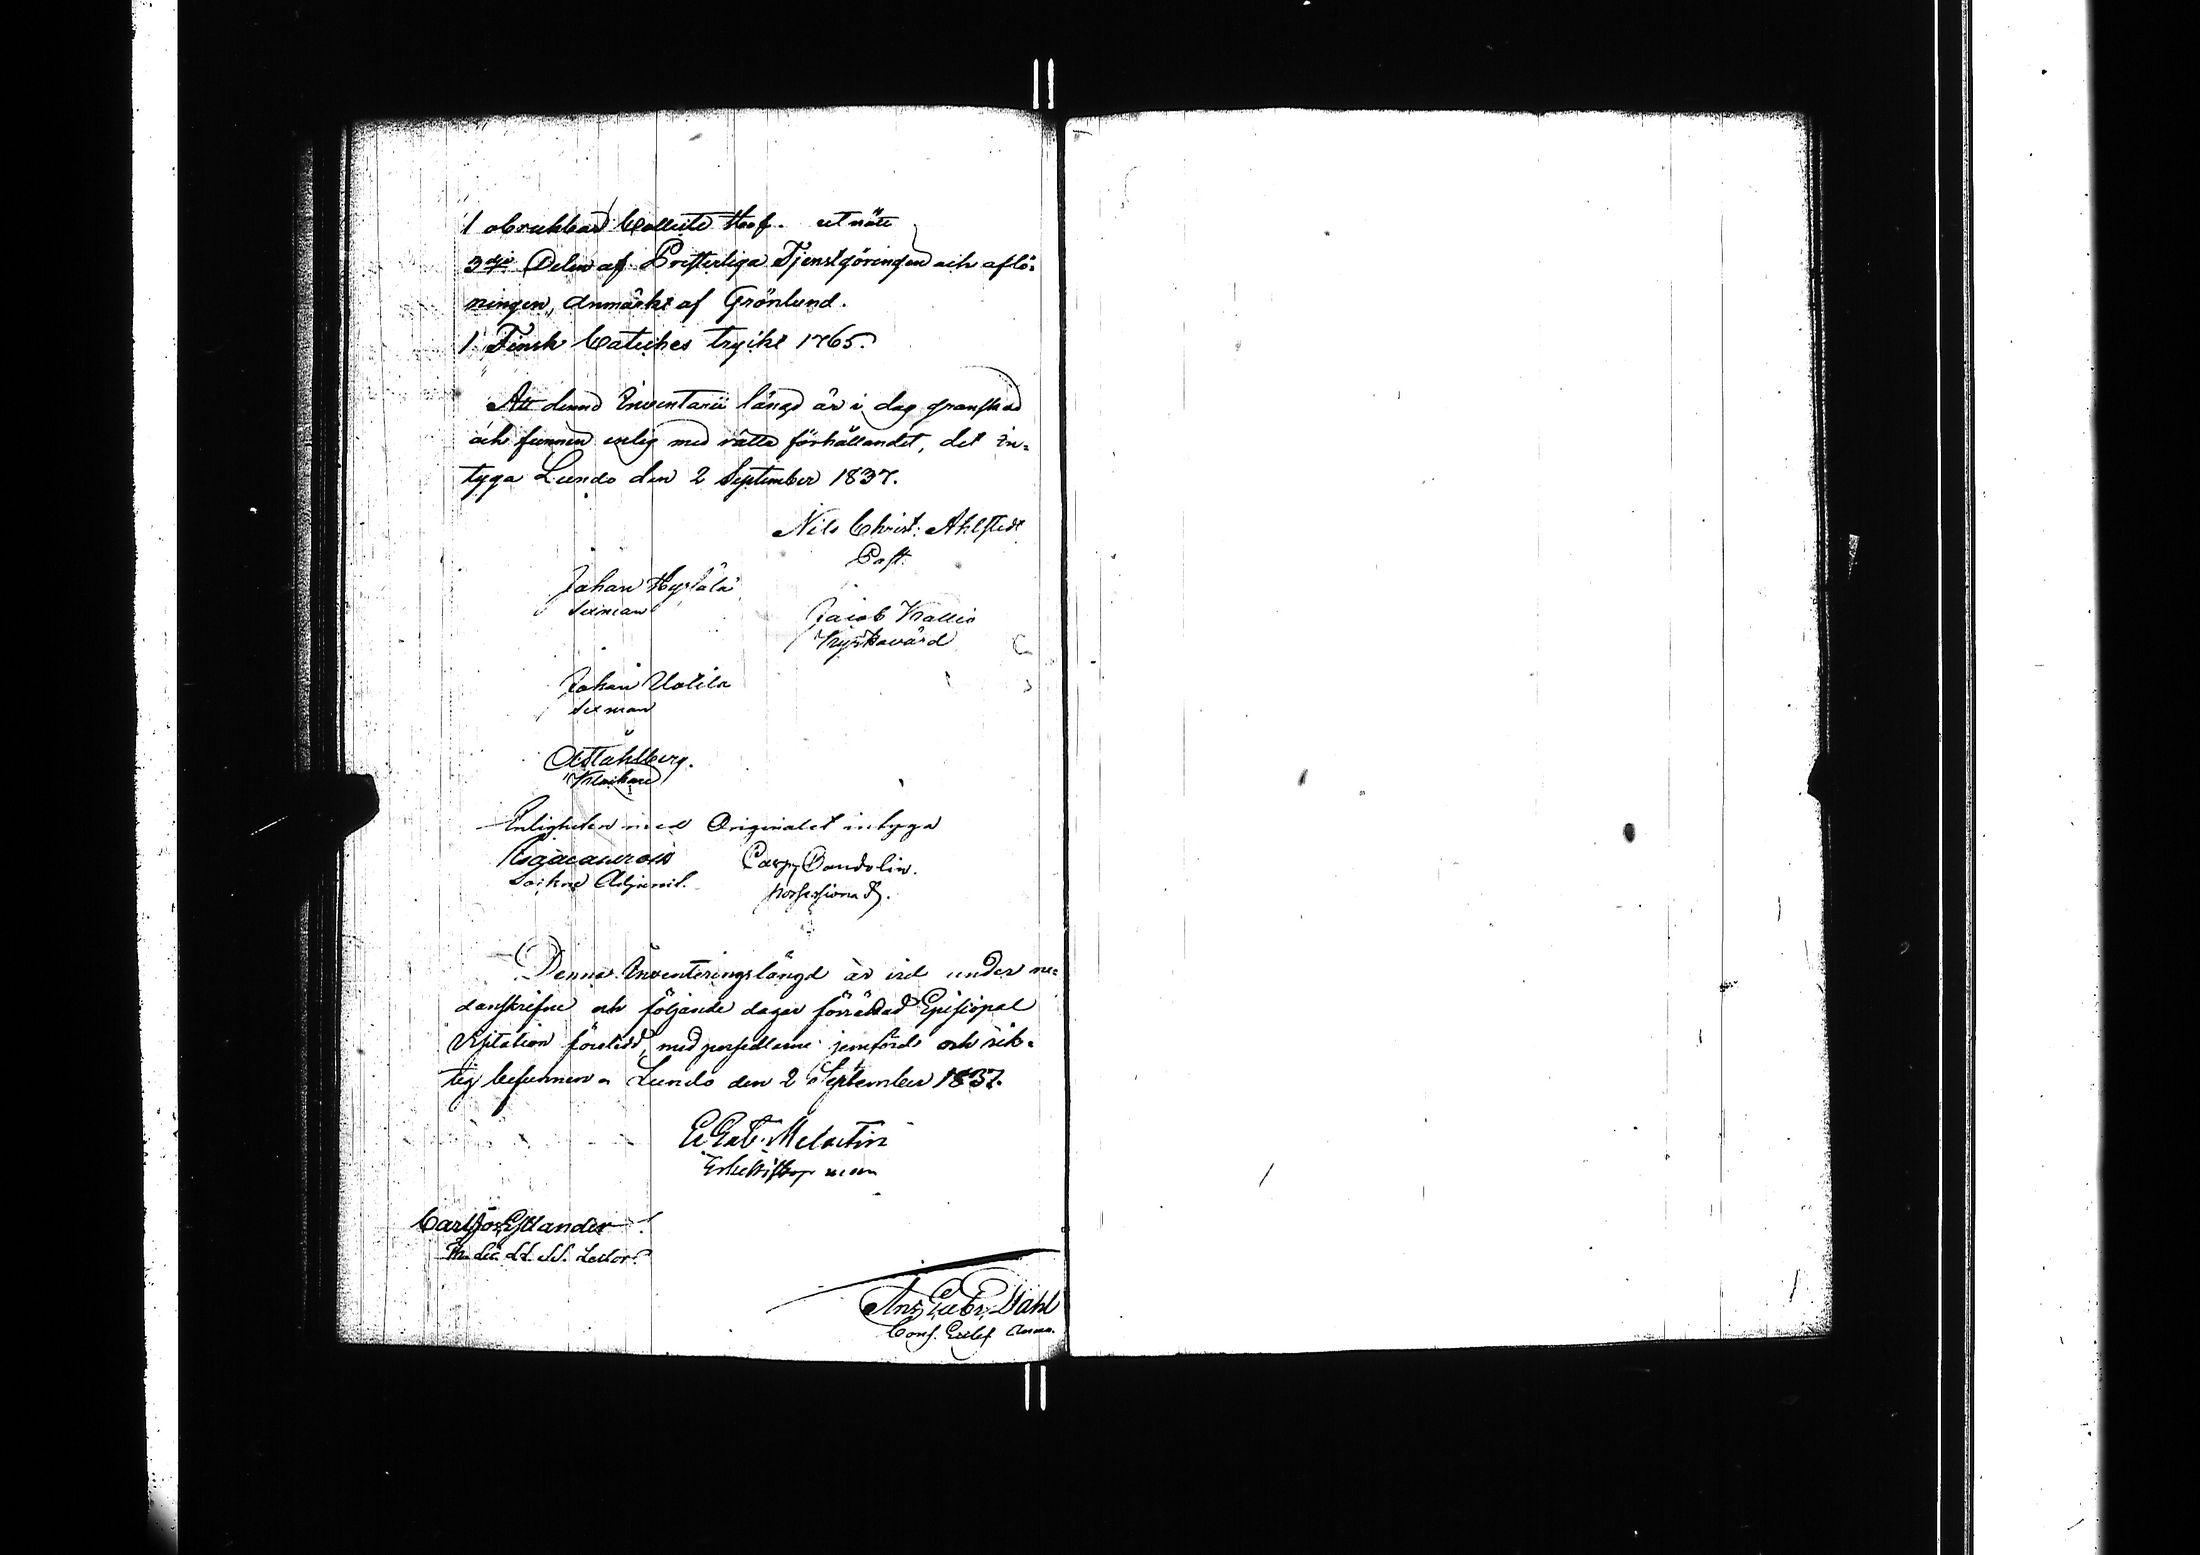 1 obrukbar Collect Haaf. utnött
3dje Delen af Presterliga Tjenstgöringen och aflö-
ningen, Anmärkt af Grönlund.
1 Finsk Cateches tryckt 1765.
Att denna Inventarii längd är i dag granskad
och funnen enlig med rätta förhållandet, det in-
tyga Lundo den 2 September 1837.
Nils Christ: Ahlstedt
Past.
Johan
Sexman
Jacob Kallis
Kyrkovärd
Johan Uotila
Sexman
A Ståhlberg.
Klockare
Enligheten med Originalet intyga
Sockne Adjunct.
Bandolin.
Denna Inventeringslängd är vid under ne-
danskrifne och följande dagar förrättad Episcopal
Visitation företedd, med persedlarne jemförd och rik-
tig befunnen. Lundo den 2 September 1837.
E Gab. Melartin
Erkebiskop
Carl Gylander
Lector
And. Gabr. Dahl
Cons.